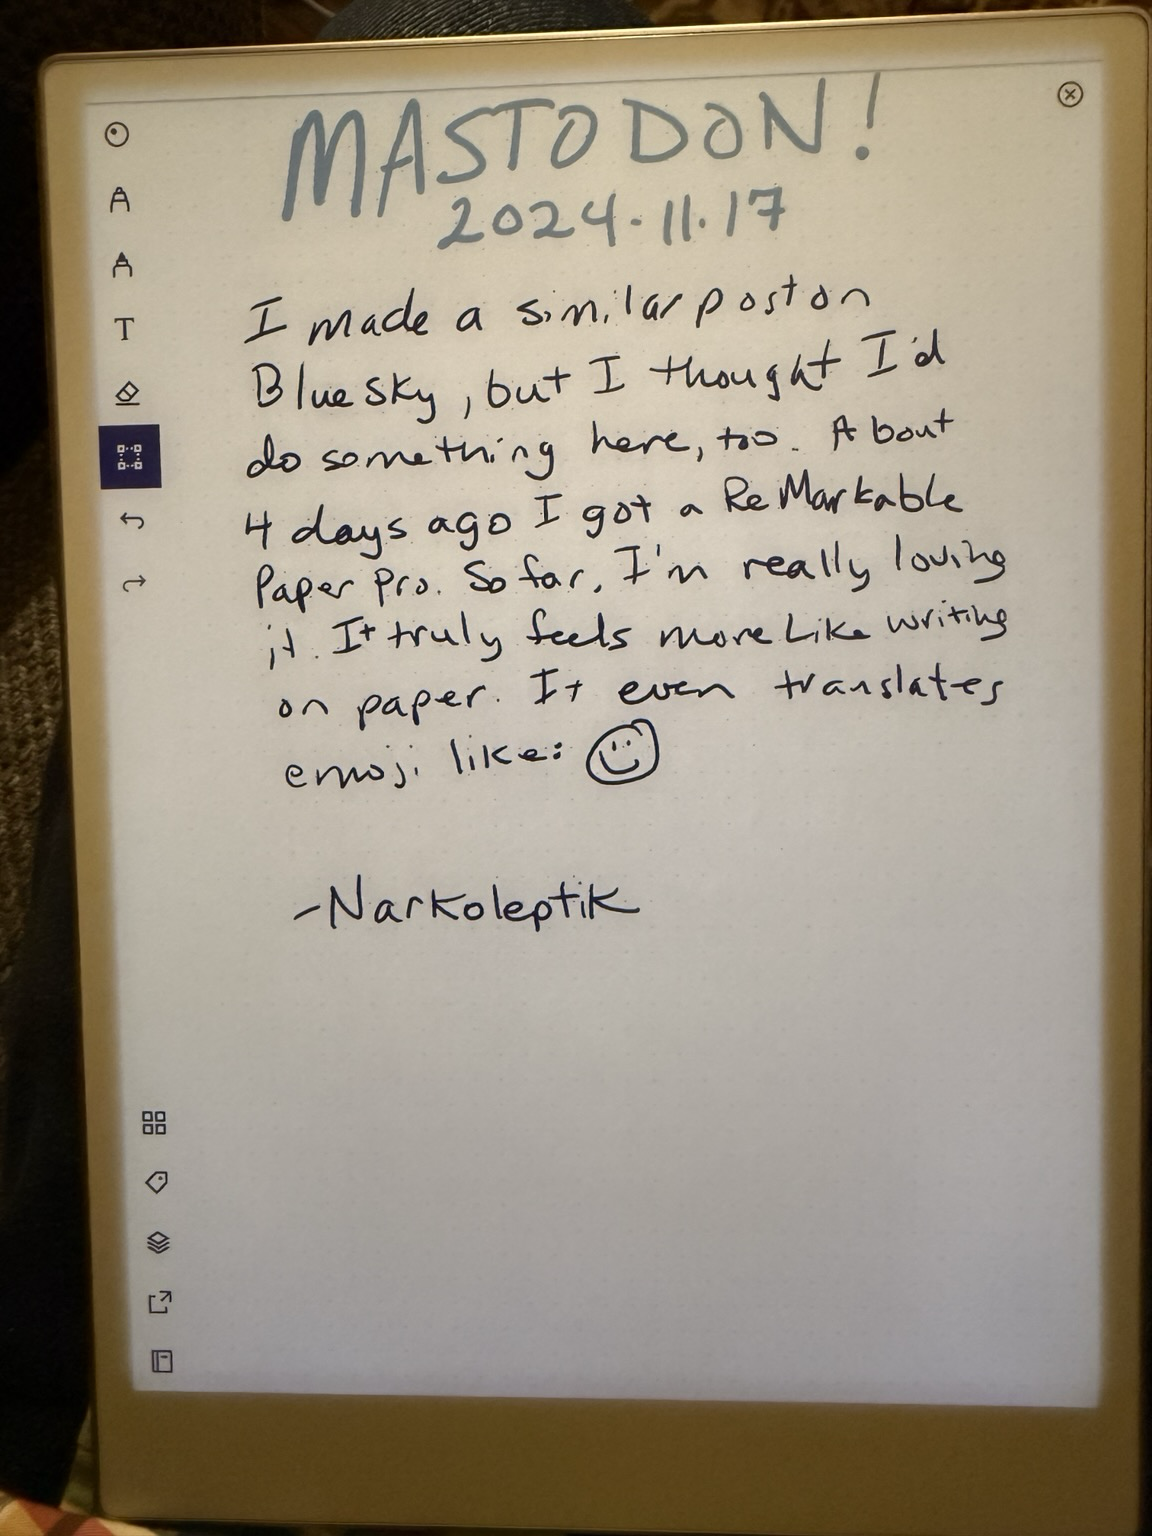 MASTODON!
2024.11.17
I made a similar post on
BlueSky, but I thought I'd
do something here, too. About
4 days ago I got a ReMarkable
Paper Pro. So far, I'm really loving
it. It truly feels more Like writing
on paper. It even translates
emoji like: ☺
-Narkoleptik
T